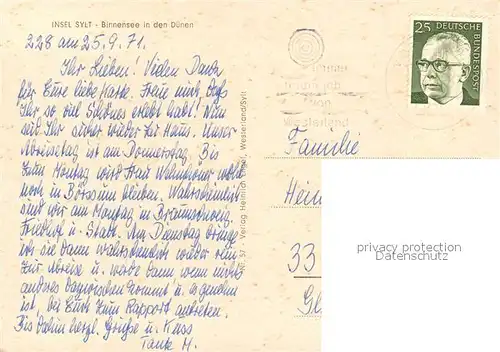 INSEL SYLT - Binnensee in den Dünen
228 am 25.9.71.
Ihr Lieben! Vielen Dank
für Eure liebe Karte. Freue mich, daß
Ihr so viel Schönes erlebt habt! Nun
seid Ihr sicher wieder zu Haus. Unser
Abreisetag ist am Donnerstag. Bis
zum Montag wird Frau wohl
noch in Börssum bleiben. Wahrscheinlich
sind wir am Montag in Braunschweig.
Friedhof u. Stadt. Am Dienstag bringe
ich sie dann wahrscheinlich wieder hin
zur Abreise u. werde dann wenn nichts
anderes dazwischen kommt u. es genehm
ist, bei Euch zum Rapport antreten.
Bis dahin herzl. Grüße u. Kuss
Tante M.
Nr. 57 - Verlag Heinrich Engel, Westerland/Sylt
Westerland
25 DEUTSCHE BUNDESPOST
Familie
Hein
33
privacy protection
Datenschutz